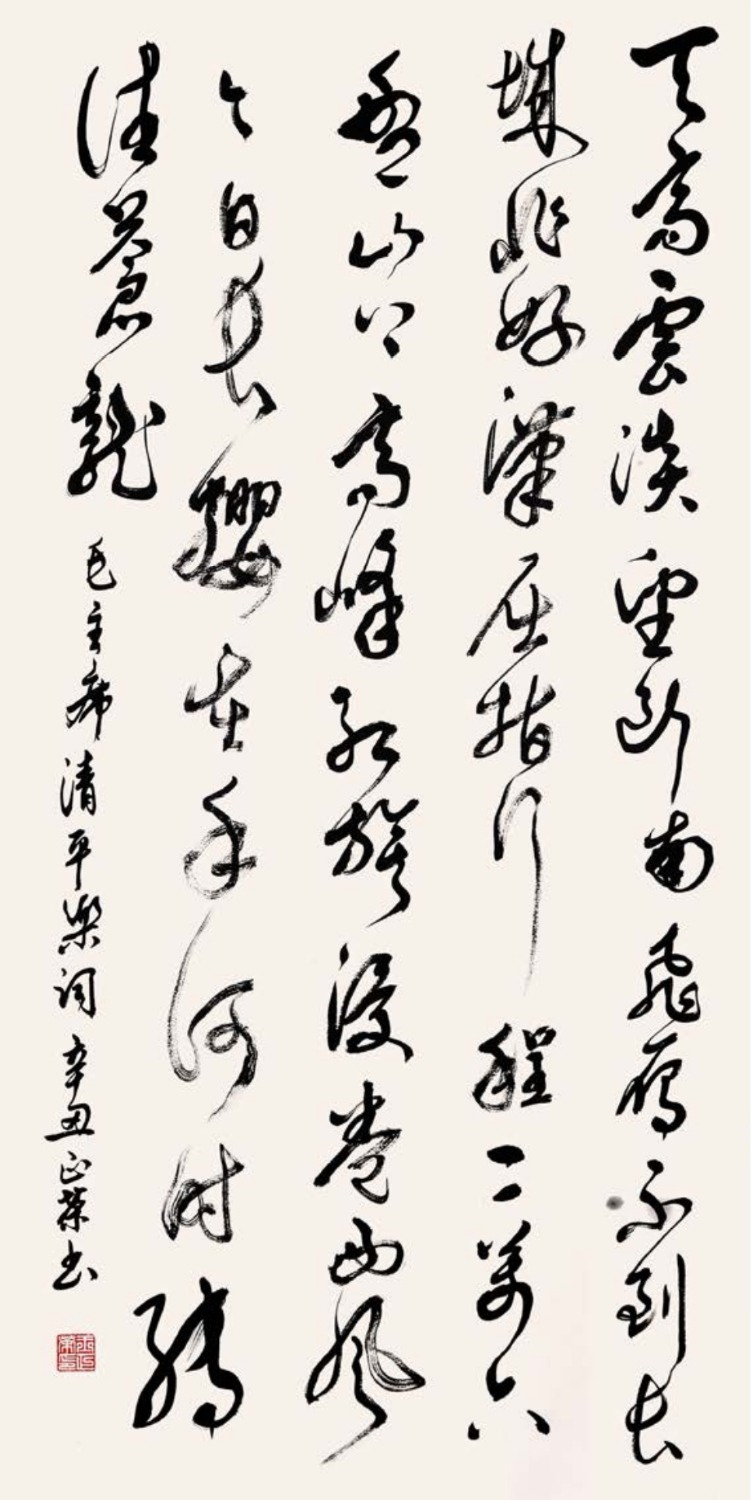 天高雲淡望斷南飛雁不到長
城非好漢屈指行程二萬六
盤山上高峰紅旗漫卷西風
今日長纓在手何時縛
住蒼龍
毛主席清平樂詞 辛丑正榮书